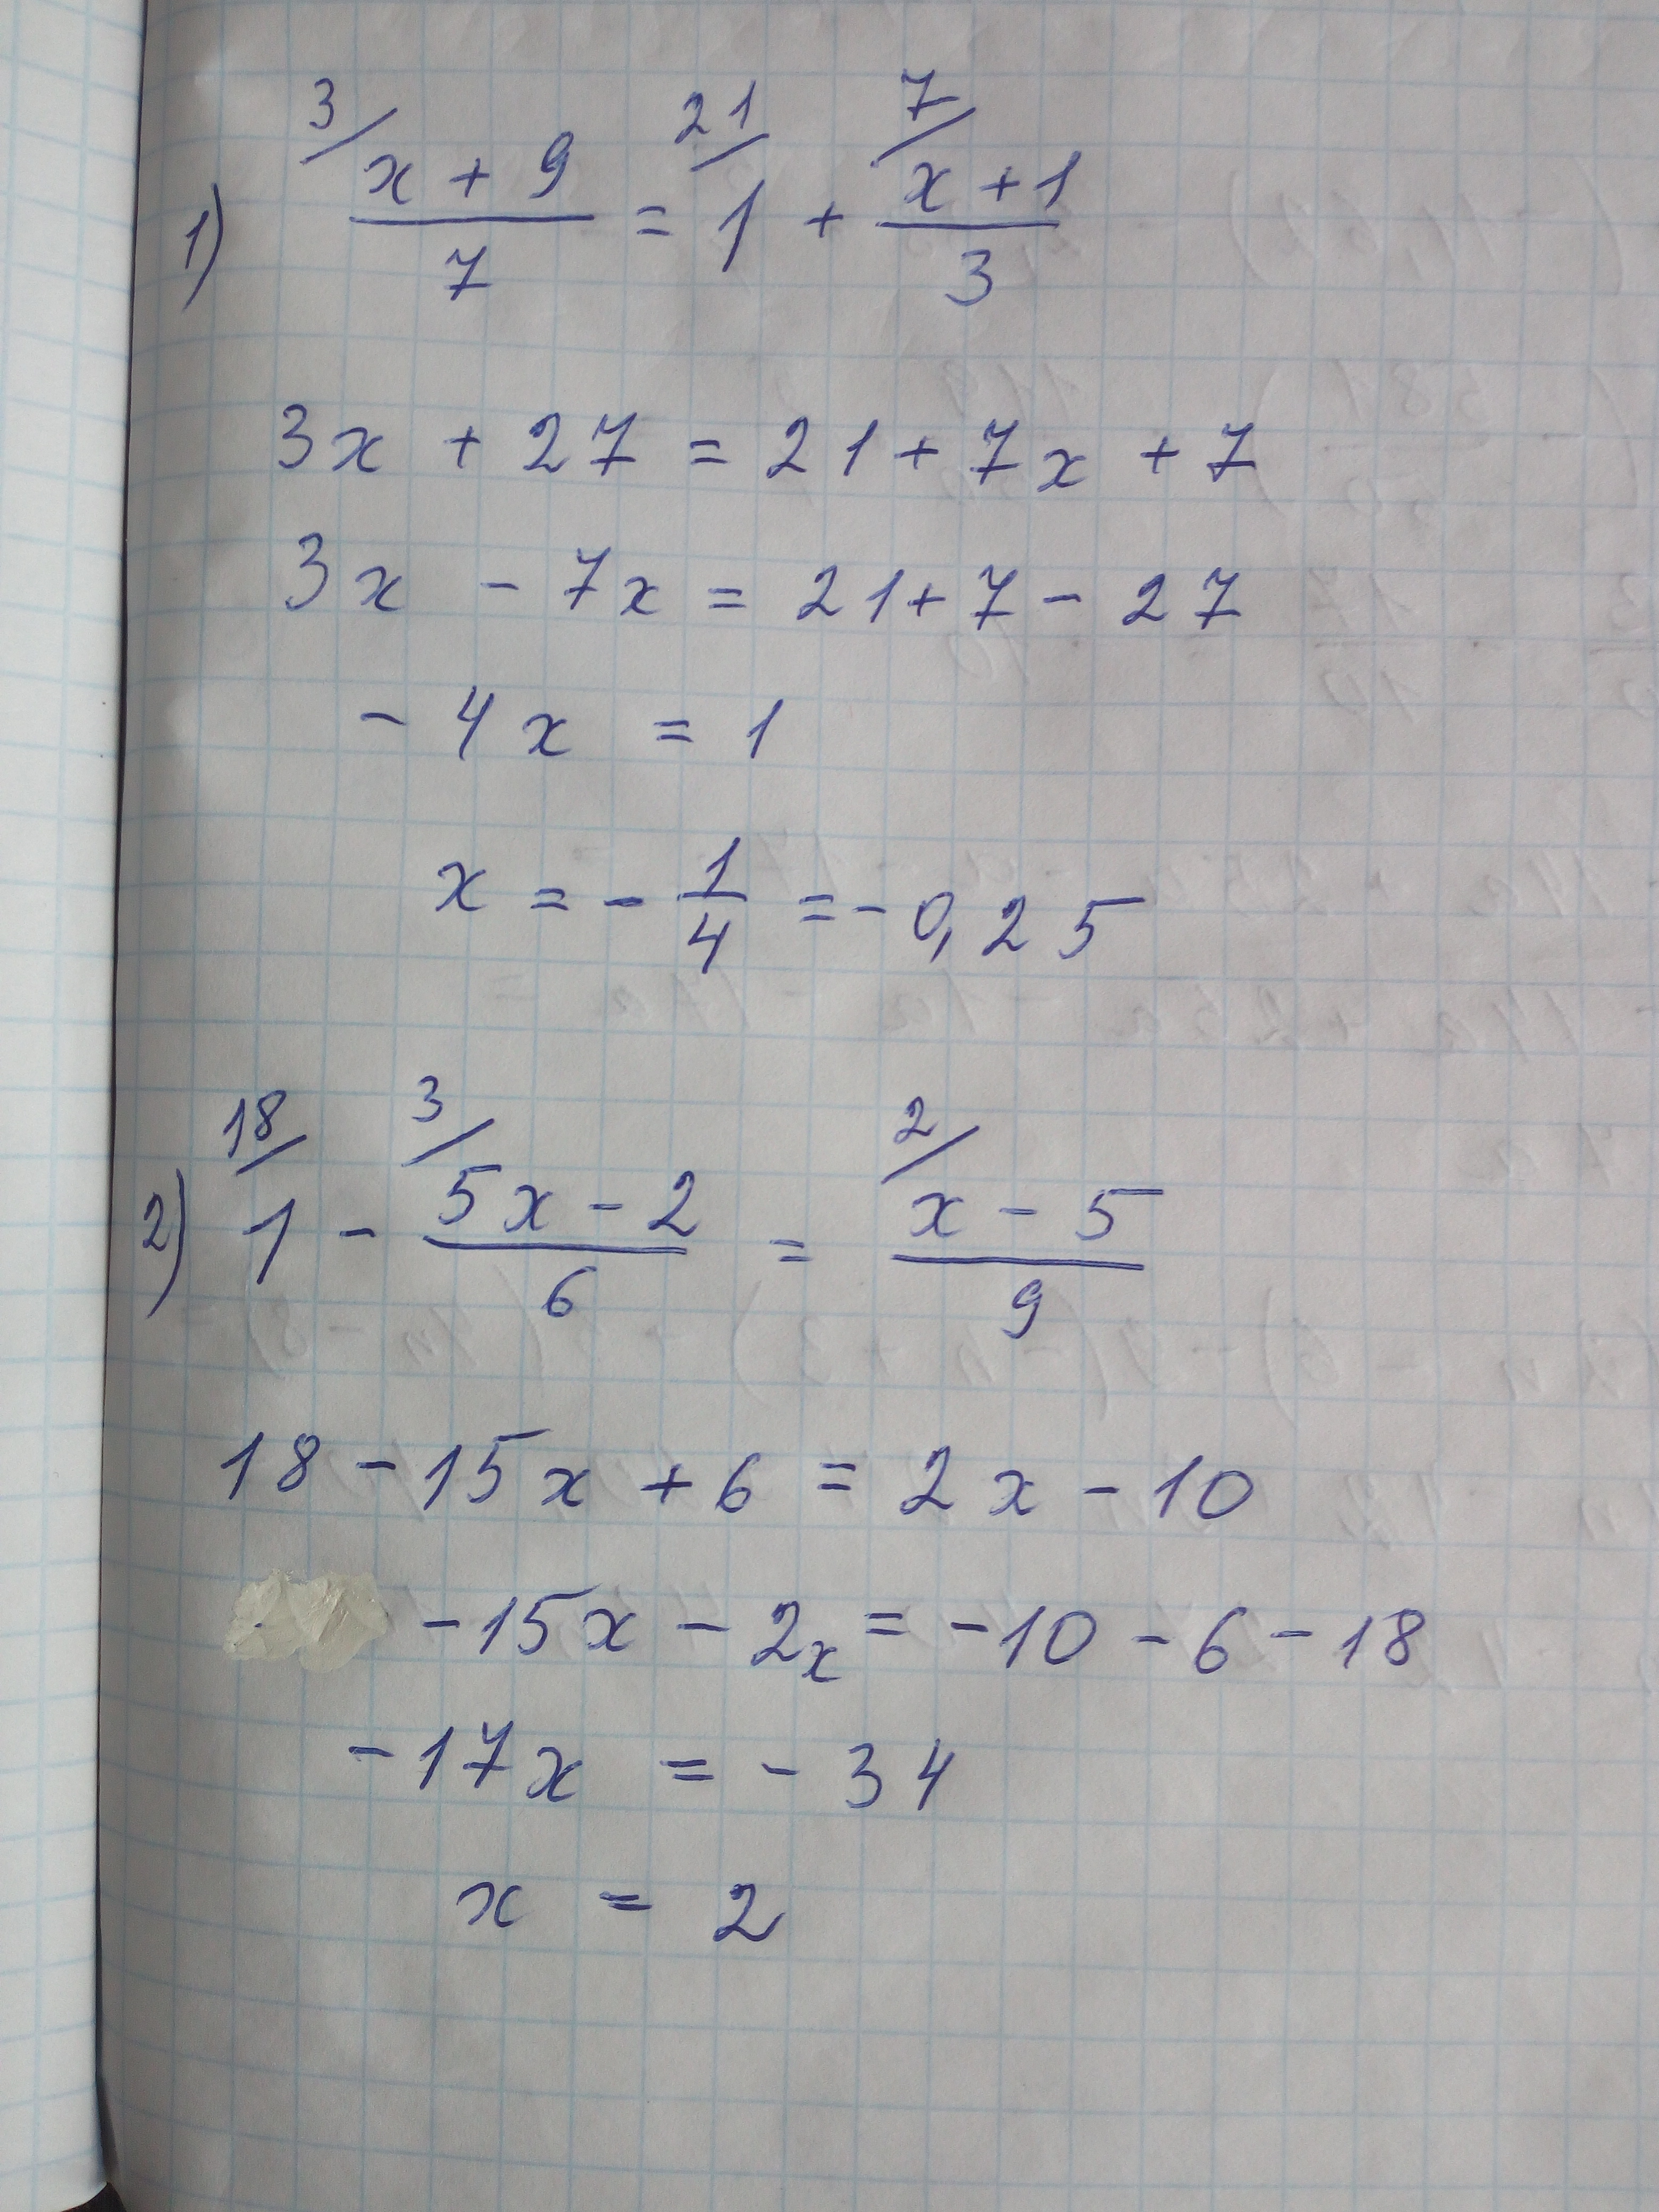 3/ 21/ 7/
1) x + 9 / 7 = 1 + x + 1 / 3
3x + 27 = 21 + 7x + 7
3x - 7x = 21 + 7 - 27
- 4x = 1
x = - 1/4 = - 0,25
18/ 3/ 2/
2) 1 - 5x - 2 / 6 = x - 5 / 9
18 - 15x + 6 = 2x - 10
- 15x - 2x = - 10 - 6 - 18
- 17x = - 34
x = 2